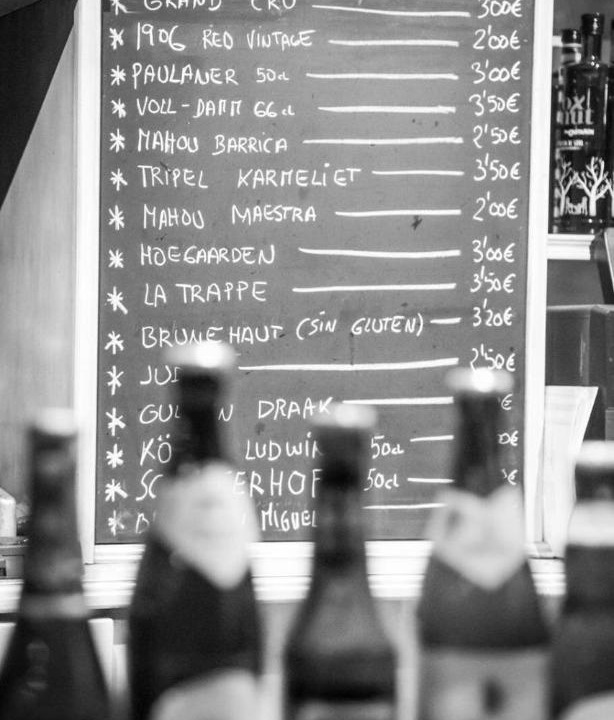 * GRAND CRU 3'00€
* 1906 RED VINTAGE 2'00€
* PAULANER 50cl 3'00€
* VOLL-DAMM 66cl 3'50€
* MAHOU BARRICA 2'50€
* TRIPEL KARMELIET 3'50€
* MAHOU MAESTRA 2'00€
* HOEGAARDEN 3'00€
* LA TRAPPE 3'50€
* BRUNEHAUT (SIN GLUTEN) 3'20€
* 2'50€
* DRAAK €
* 50cl €
* 50cl €
* MIGUEL